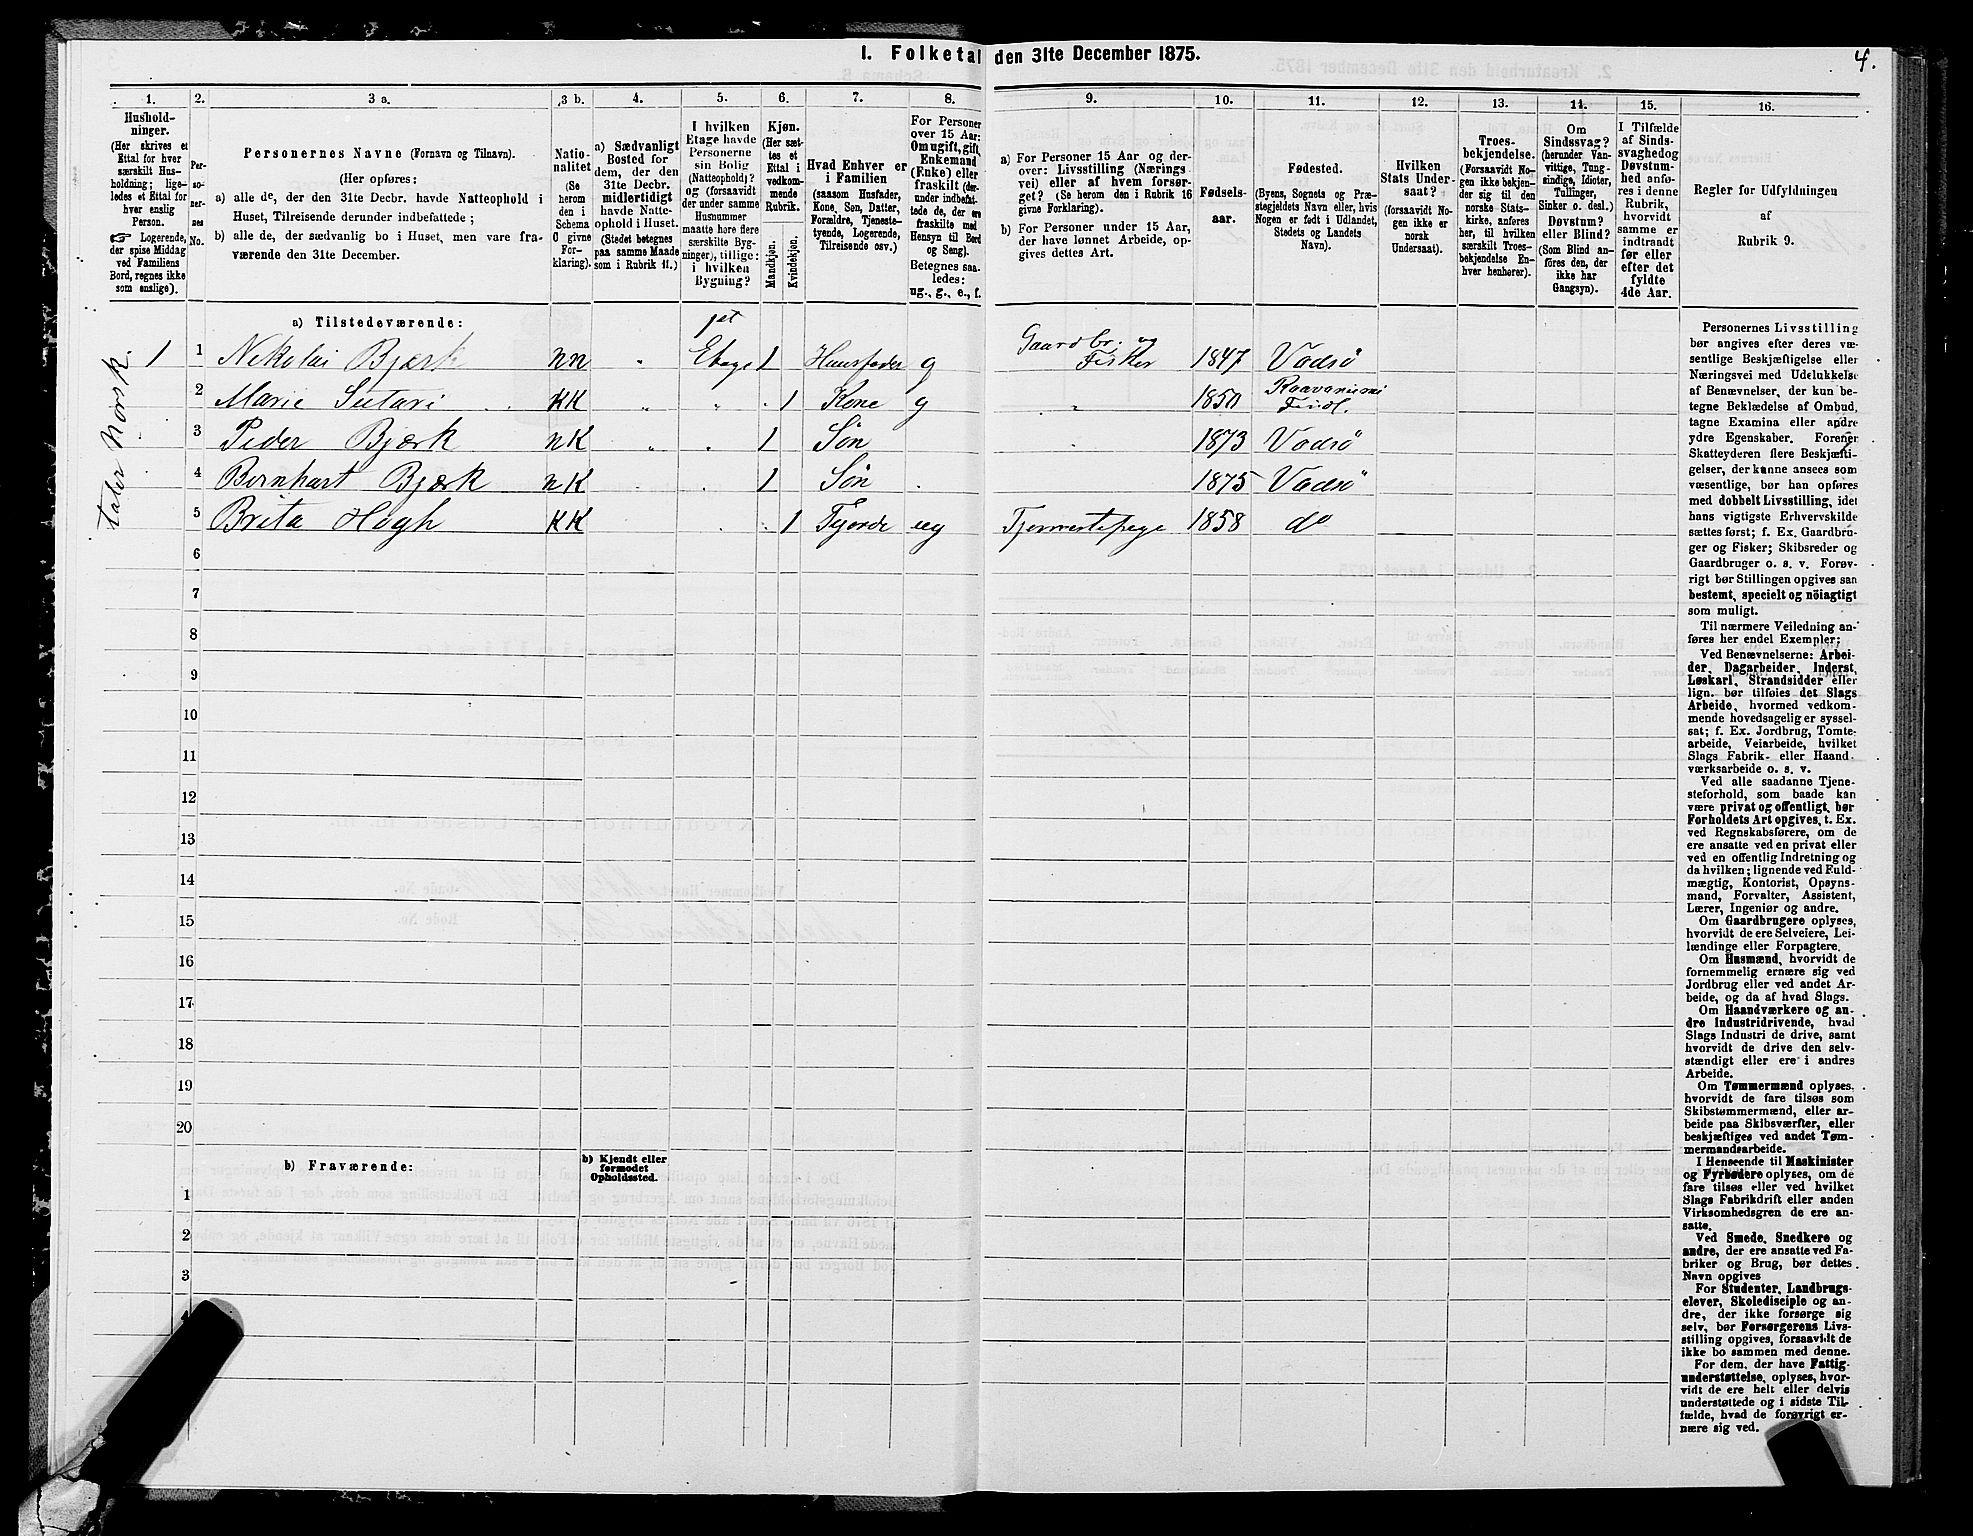 I. Folketal den 31te December 1875.
4.
1. 2. 3 a. 3 b. 4. 5. 6. 7. 8. 9. 10. 11. 12. 13. 14. 15. 16.
Hushold-
ninger.
(Her skrives et
Ettal for hver
særskilt Hus-
holdning; lige-
ledes et Ettal for
hver enslig
Person.
☞ Logerende,
der spise Middag
ved Familiens
Bord, regnes ikke
som enslige).
Per-
so-
ner-
nes
No.
Personernes Navne (Fornavn og Tilnavn).
(Her opføres:
a) alle de, der den 31te Decbr. havde Natteophold i
Huset, Tilreisende derunder indbefattede;
b) alle de, der sædvanlig bo i Huset, men vare fra-
værende den 31te December.
Natio-
nalitet
(Se
herom
den i
Schema
O givne
For-
klaring).
a) Sædvanligt
Bosted for
dem, der den
31te Decbr.
midlertidigt
havde Natte-
ophold i Huset.
(Stedet betegnes
paa samme Maade
som i Rubrik 11.)
I hvilken
Etage havde
Personerne
sin Bolig
(Natteophold)?
og (forsaavidt
der under samme
Husnummer
maatte høre flere
særskilte Byg-
ninger), tillige:
i hvilken
Bygning?
Kjøn.
(Her sæt-
tes et
Ettal i
vedkom-
mende
Rubrik.
Mandkjøn.
Kvindekjøn.
Hvad Enhver er
i Familien
(saasom Husfader,
Kone, Søn, Datter,
Forældre, Tjeneste-
tyende, Logerende,
Tilreisende osv.)
For Personer
over 15 Aar:
Om ugift, gift,
Enkemand
(Enke) eller
fraskilt (der-
under indbefat-
tede de, der ere
fraskilte med
Hensyn til Bord
og Seng).
Betegnes saa-
ledes:
ug., g., e., f.
a) For Personer 15 Aar og der-
over: Livsstilling (Nærings-
vei) eller af hvem forsør-
get? (Se herom den i Rubrik 16
givne Forklaring).
b) For Personer under 15 Aar,
der have lønnet Arbeide, op-
gives dettes Art.
Fødsels-
aar.
Fødested.
(Byens, Sognets og Præ-
stegjeldets Navn eller, hvis
Nogen er født i Udlandet,
Stedets og Landets
Navn).
Hvilken
Stats Under-
saat?
(forsaavidt No-
gen ikke er
norsk
Undersaat).
Troes-
bekjendelse.
(Forsaavidt No-
gen ikke bekjen-
der sig til den
norske Stats-
kirke, anføres
her, til hvilken
særskilt Troes-
bekjendelse En-
hver henhører).
Om
Sindssvag?
(herunder Van-
vittige, Tung-
sindige, Idioter,
Tullinger,
Sinker o. desl.)
Døvstum?
eller Blind?
(Som Blind an-
føres den, der
ikke har
Gangsyn).
I Tilfælde
af Sinds-
svaghedog
Døvstum-
hed anfø-
res i denne
Rubrik,
hvorvidt
samme er
indtraadt
før eller
efter det
fyldte
4de Aar.
Regler for Udfyldningen
af
Rubrik 9.
a) Tilstedeværende:
taler Norsk.
1 1 Nikolai Bjærk nn „ 1st Etage 1 Huusfader g Gaardbr. og Fisker 1847 Vadsö
2 Marie Sutari KK „ „ 1 Kone g „ 1850 Finl.
3 Peder Bjærk nK „ 1 Søn 1873 Vadsö
4 Bernhart Bjærk nK 1 Søn 1875 Vadsö
5 Brita Høgh KK 1 ug 1858 do
6
7
8
9
10
11
12
13
14
15
16
17
18
19
20
b) Fraværende:
b) Kjendt eller
formodet
Opholdssted.
1
2
3
4
Personernes Livsstilling
bør angives efter deres væ-
sentlige Beskjæftigelse eller
Næringsvei med Udelukkelse
af Benævnelser, der kun be-
tegne Beklædelse af Ombud,
tagne Examina eller andre
ydre Egenskaber. Forener
Skatteyderen flere Beskjæfti-
gelser, der kunne ansees som
væsentlige, bør han opføres
med dobbelt Livsstilling, idet
hans vigtigste Erhvervskilde
sættes først; f. Ex. Gaardbru-
ger og Fisker; Skibsreder og
Gaardbruger o. s. v. Forøv-
rigt bør Stillingen opgives saa
bestemt, specielt og nöiagtigt
som muligt.
Til nærmere Veiledning an-
føres her endel Exempler;
Ved Benævnelserne: Arbei-
der, Dagarbeider, Inderst,
Løskarl, Strandsidder eller
lign. bør tilføies det Slags
Arbeide, hvormed vedkom-
mende hovedsagelig er syssel-
sat; f. Ex. Jordbrug, Tomte-
arbeide, Veiarbeide, hvilket
Slags Fabrik- eller Haand
værksarbeide o. s. v.
Ved alle saadanne Tjene-
steforhold, som baade kan
være privat og offentligt, bør
Forholdets Art opgives, t. Ex.
ved Regnskabsførere, om de
ere ansatte ved en privat eller
ved en offentlig Indretning og
da hvilken; lignende ved Fuld-
mægtig, Kontorist, Opsyns-
mand, Forvalter, Assistent,
Lærer, Ingeniør og andre.
Om Gaardbrugere oplyses,
hvorvidt de ere Selveiere, Lei-
lændinge eller Forpagtere.
Om Husmænd, hvorvidt de
fornemmelig ernære sig ved
Jordbrug eller ved andet Ar-
beide, og da af hvad Slags.
Om Haandværkere og an-
dre Industridrivende, hvad
Slags Industri de drive, samt
hvorvidt de drive den selv-
stændigt eller ere i andres
Arbeide.
Om Tømmermænd oplyses,
hvorvidt de fare tilsøs som
Skibstømmermænd, eller ar-
beide paa Skibsværfter, eller
beskjæftiges ved andet Tøm-
mermandsarbeide.
I Henseende til Maskinister
og Fyrbødere oplyses, om de
fare tilsøs eller ved hvilket
Slags Fabrikdrift eller anden
Virksomhedsgren de ere an-
satte.
Ved Smede, Snedkere og
andre, der ere ansatte ved Fa-
briker og Brug, bør dettes
Navn opgives
For Studenter, Landbrugs-
elever, Skoledisciple og an-
dre, der ikke forsørge sig
selv, bør Forsørgerens Livs-
stilling opgives, forsaavidt de
ikke bo sammen med denne.
For dem, der have Fattig-
understøttelse, oplyses, hvor-
vidt de ere helt eller delvis
understøttede og i sidste Til-
fælde, hvad de forøvrigt er-
nære sig ved.